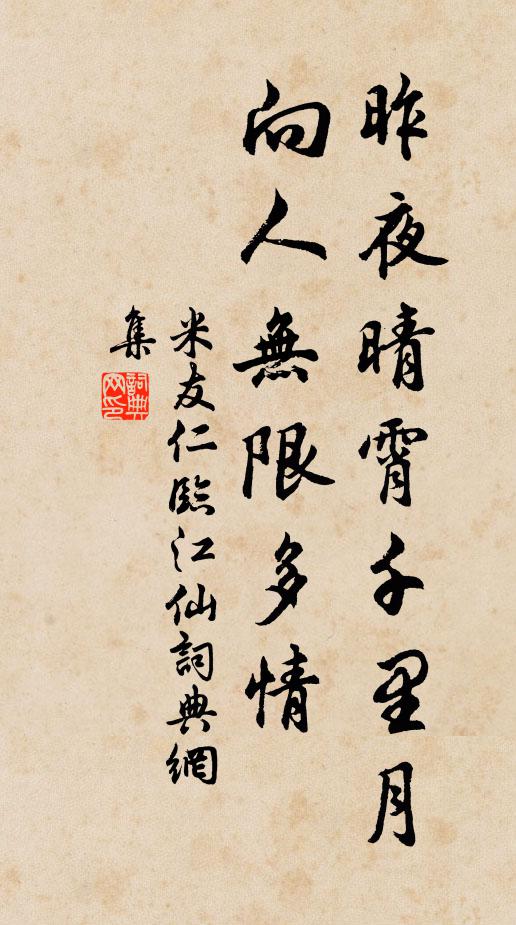 昨夜晴霄千里月
向人無限多情
米友仁臨江仙詞典網
集
詞典
网印